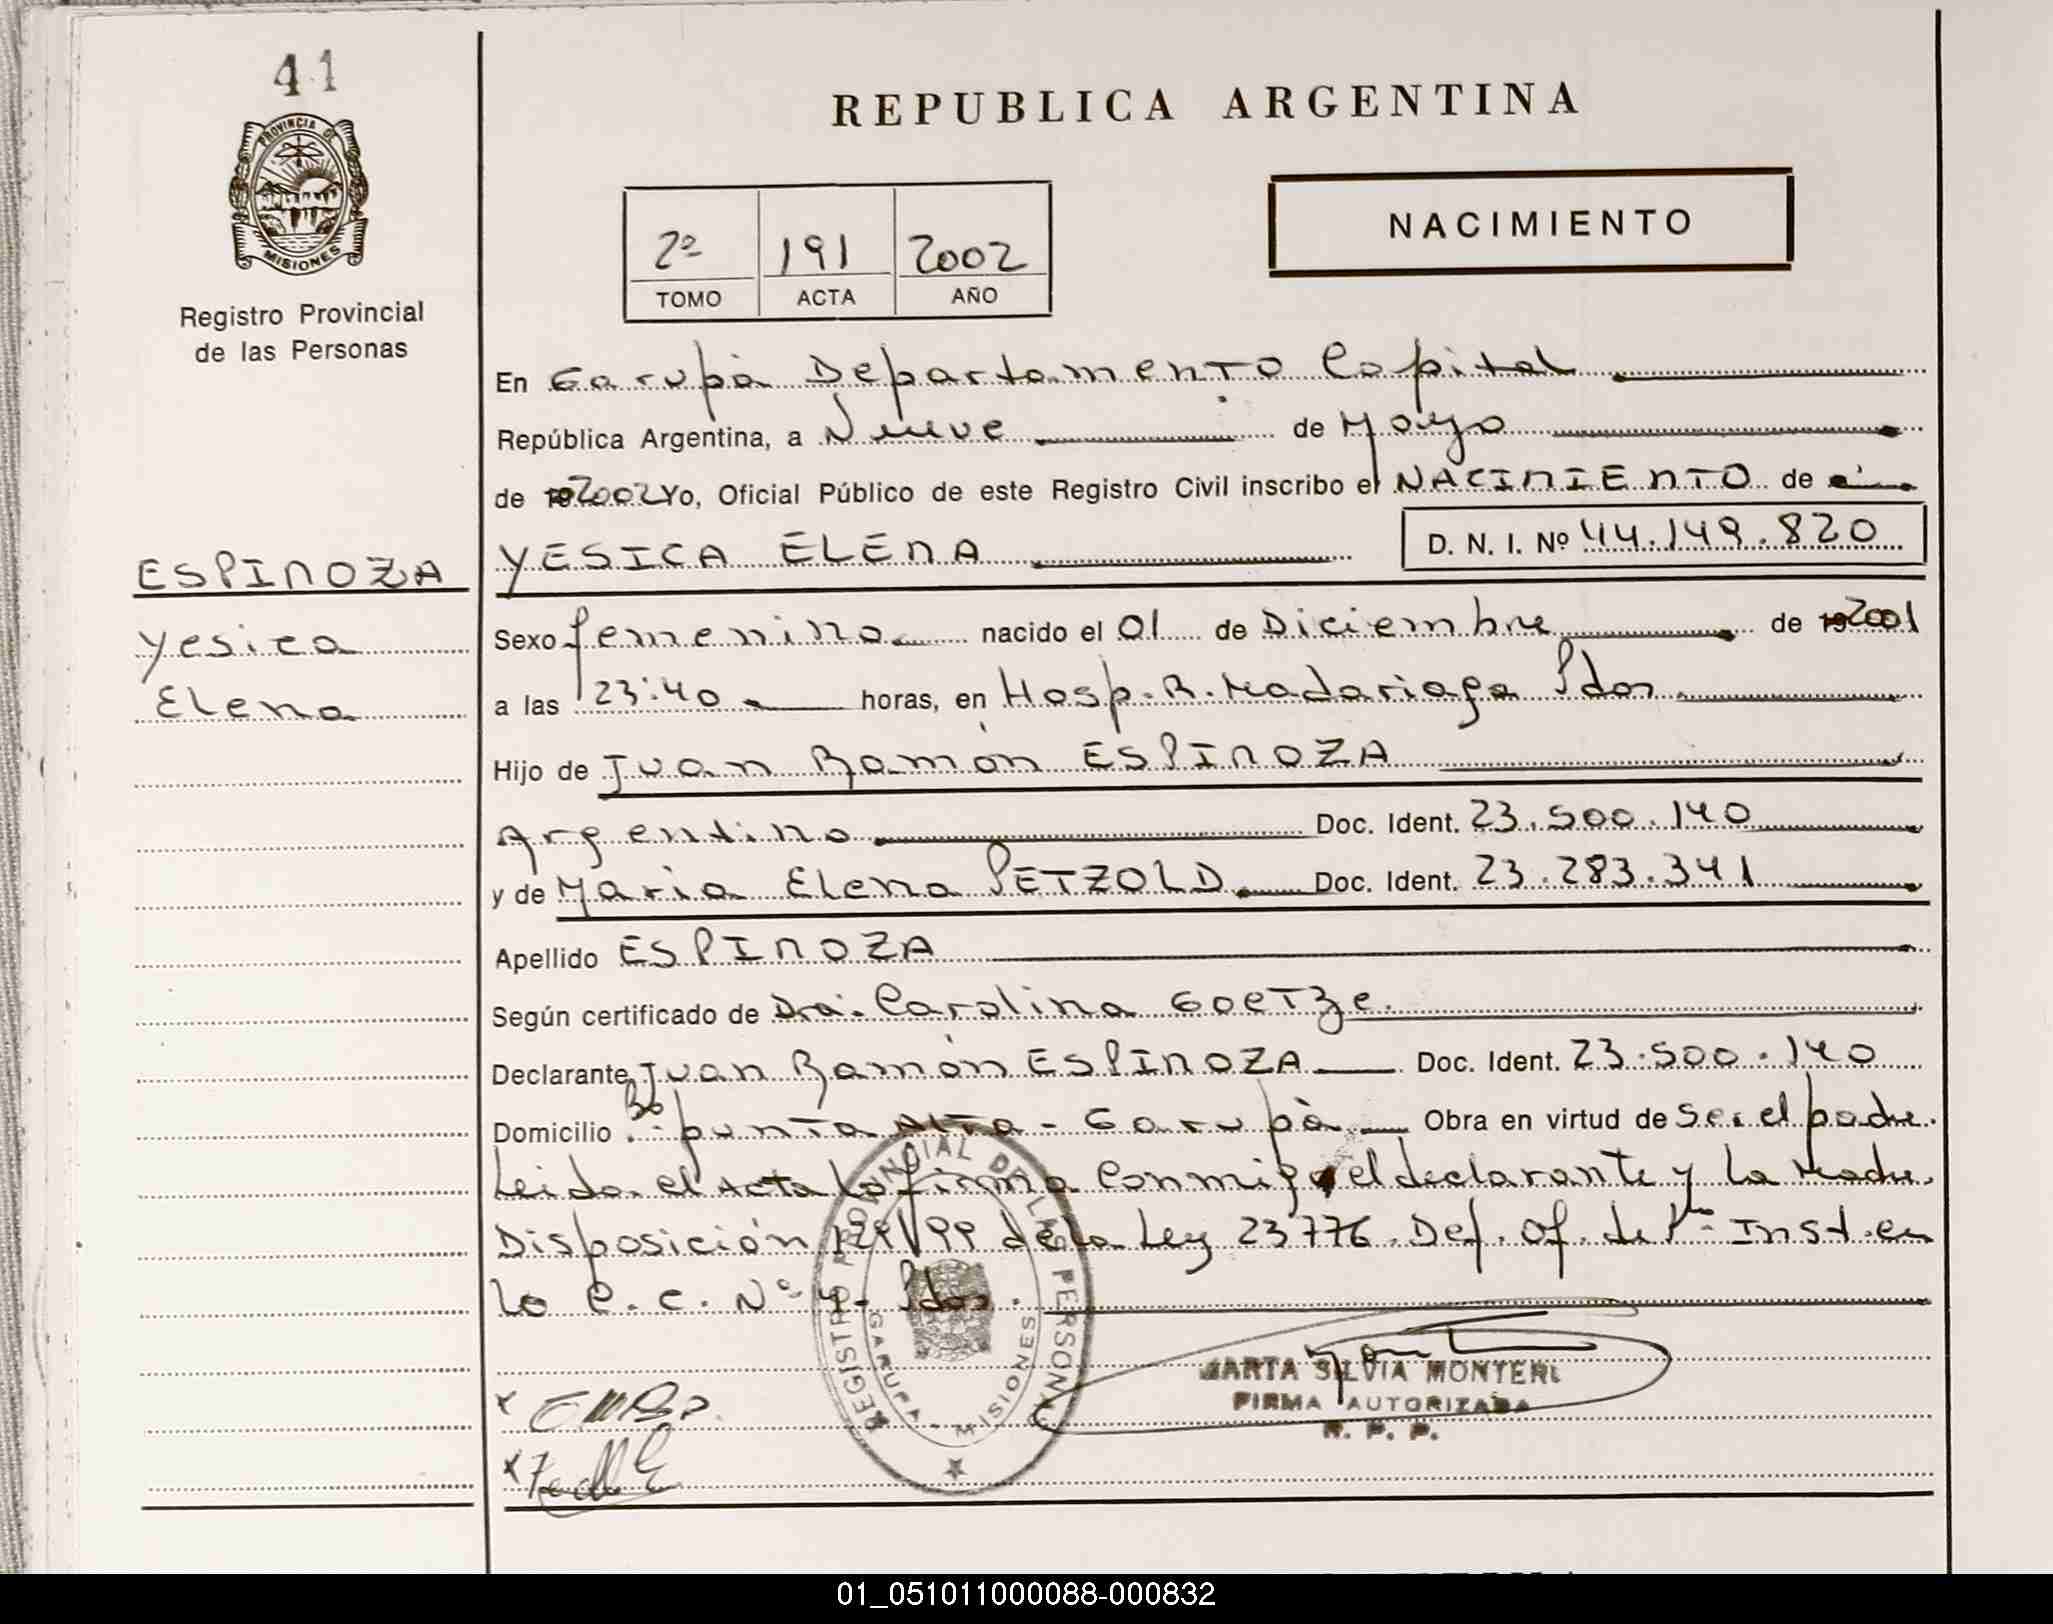 41
PROVINCIA DE
MISIONES
Registro Provincial
de las Personas
ESPINOZA
Yesica
Elena
REPUBLICA ARGENTINA
2º 191 2002
TOMO ACTA AÑO
NACIMIENTO
En Garupà Departamento Capital
República Argentina, a Nueve de Mayo
de 19 2002 Yo, Oficial Público de este Registro Civil inscribo el NACIMIENTO de
YESICA ELENA D. N. I. Nº 44.149.820
Sexo femenino nacido el 01 de Diciembre de 19 2001
a las 23:40 horas, en Hosp. R. Madariaga Pdas
Hijo de Juan Ramón ESPINOZA
Argentino Doc. Ident. 23.500.140
y de Maria Elena PETZOLD Doc. Ident. 23.283.341
Apellido ESPINOZA
Según certificado de Dra. Carolina Goetze.
Declarante Juan Ramón ESPINOZA Doc. Ident. 23.500.140
Domicilio Bº punta Alta - Garupà Obra en virtud de Ser el padre.
Leida el Acta la firma conmigo el declarante y la Madre.
Disposición 129/99 de la Ley 23776. Def. Of. de 1ra Inst. en
lo C. C. Nº 4 - Pdas.
REGISTRO PROVINCIAL DE LAS PERSONAS
GARUPA - MISIONES
MARTA SILVIA MONTERO
FIRMA AUTORIZADA
R. P. P.
01_051011000088-000832